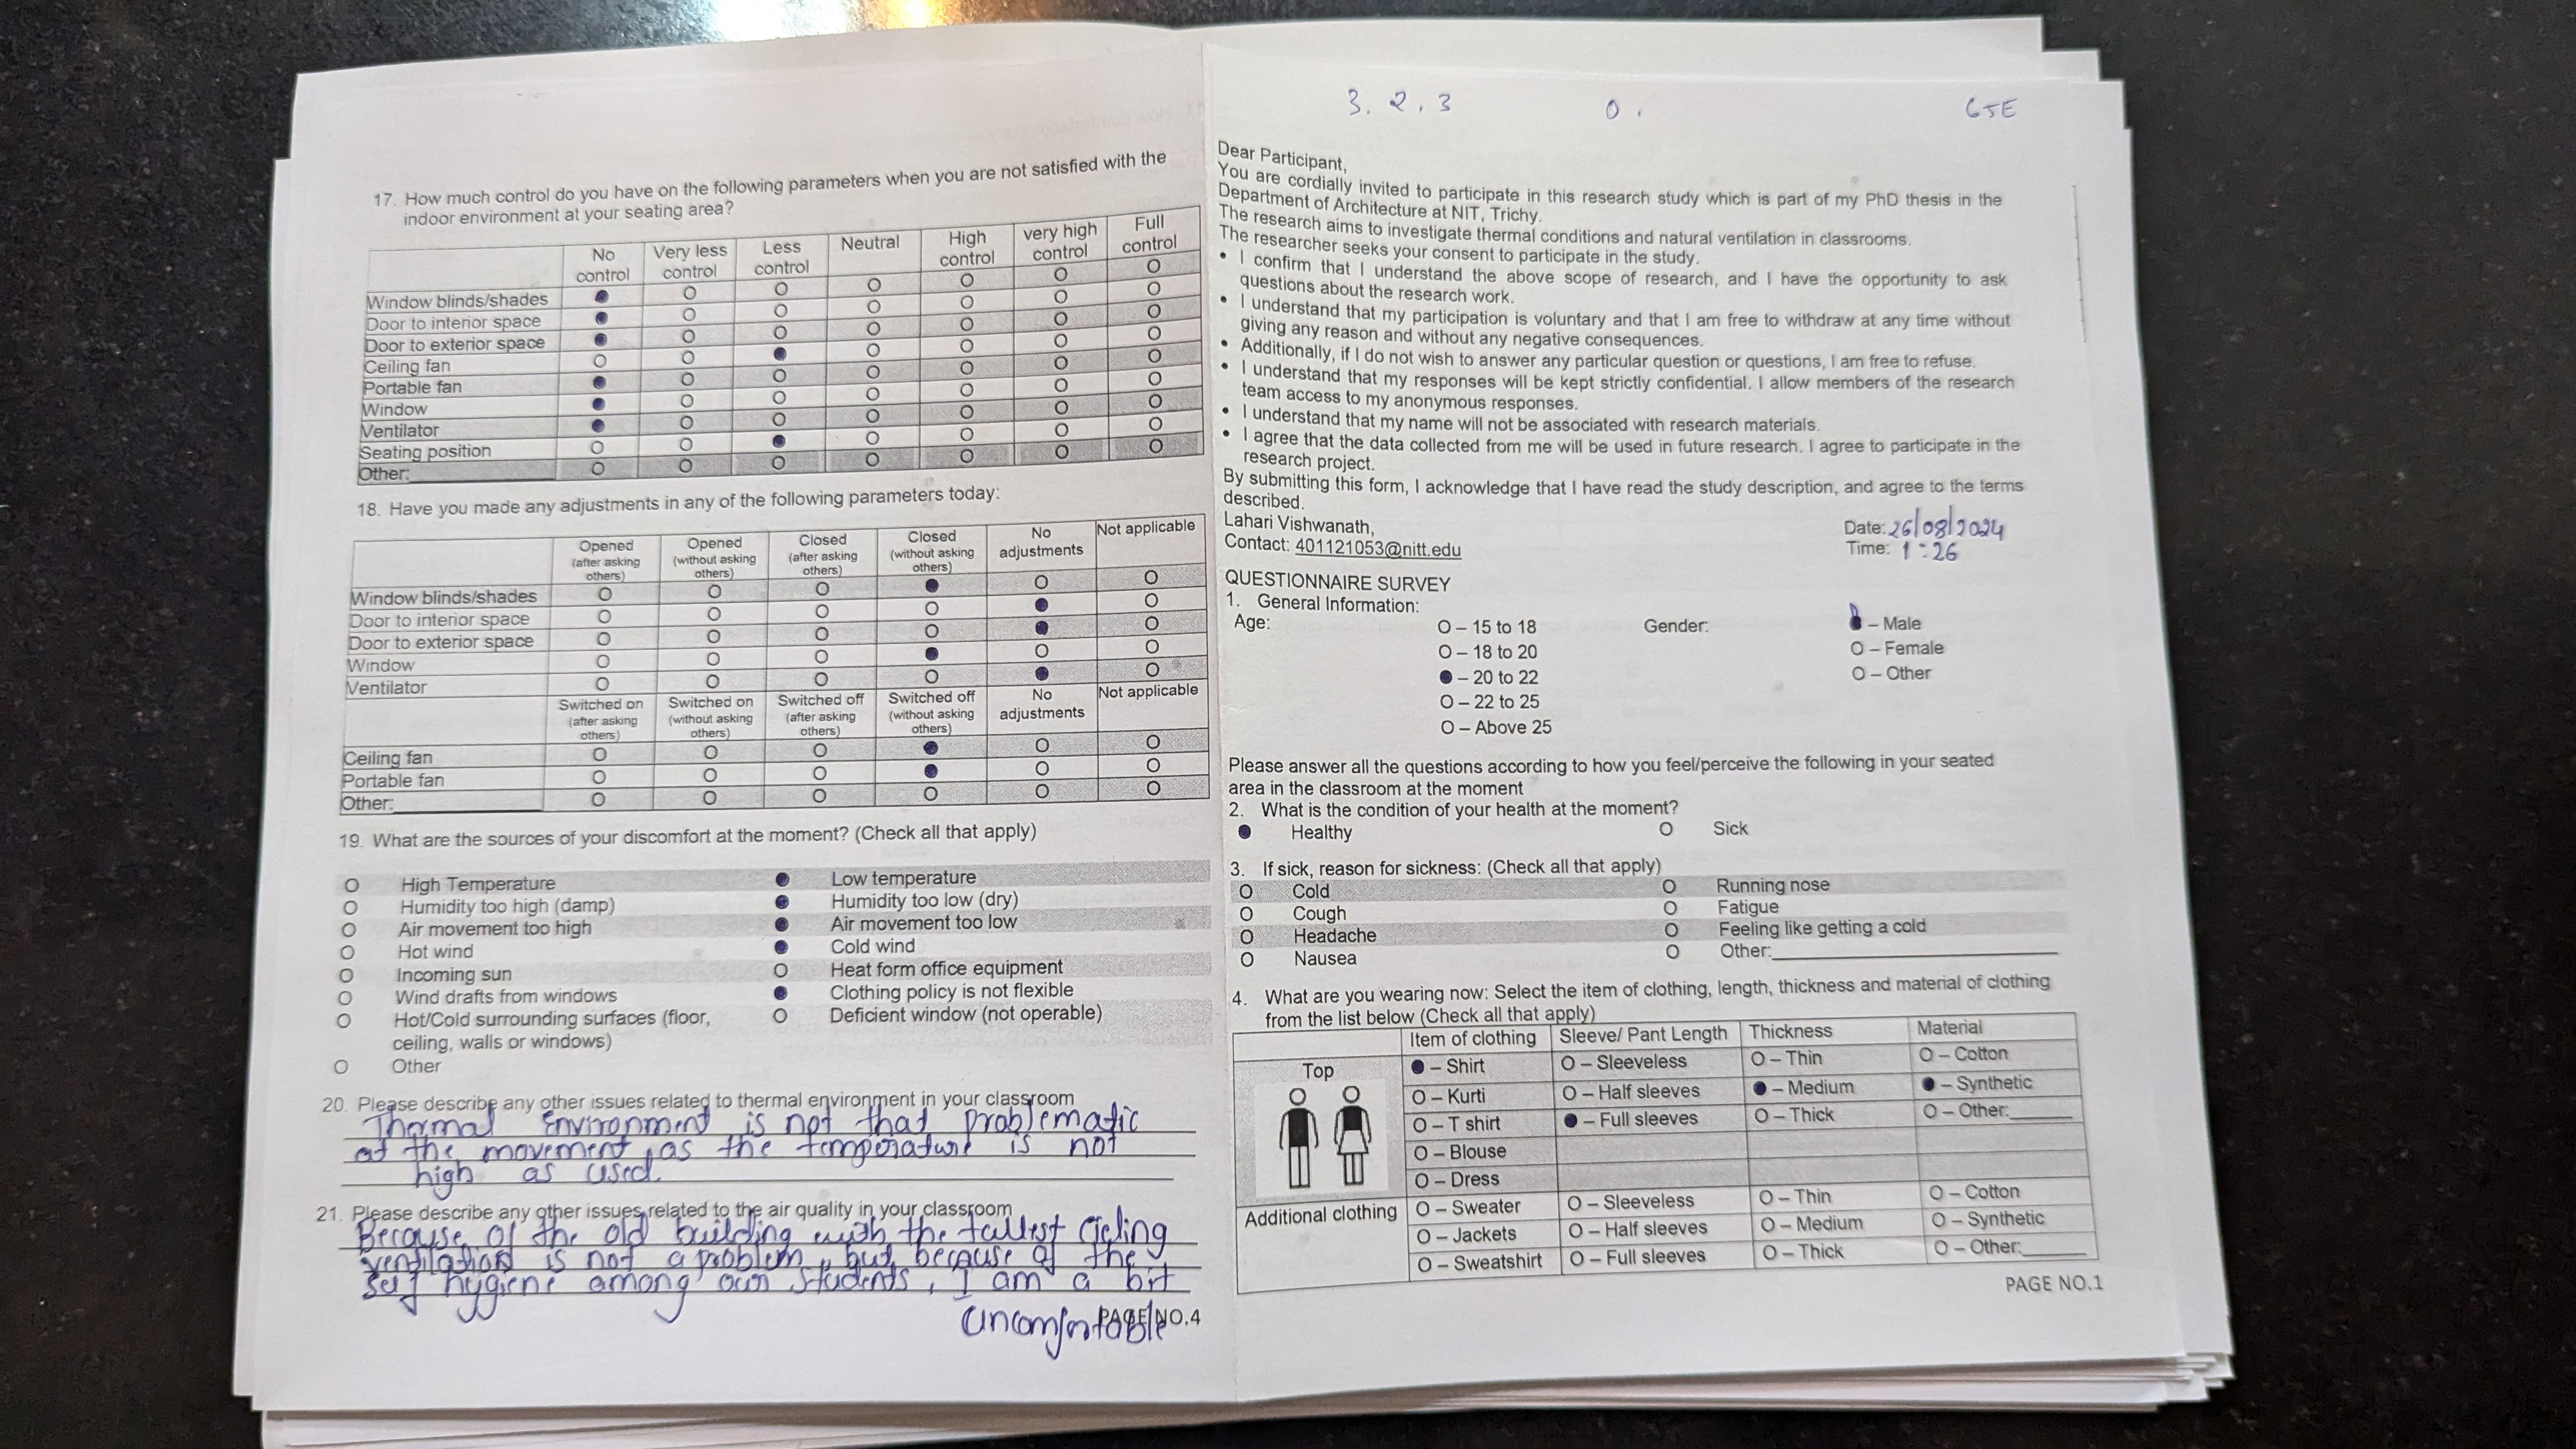 17. How much control do you have on the following parameters when you are not satisfied with the
indoor environment at your seating area?
No control Very less control Less control Neutral High control very high control Full control
Window blinds/shades ● O O O O O O
Door to interior space ● O O O O O O
Door to exterior space ● O O O O O O
Ceiling fan O O ● O O O O
Portable fan ● O O O O O O
Window ● O O O O O O
Ventilator ● O O O O O O
Seating position O O ● O O O O
Other: O O O O O O O
18. Have you made any adjustments in any of the following parameters today:
Opened (after asking others) Opened (without asking others) Closed (after asking others) Closed (without asking others) No adjustments Not applicable
Window blinds/shades O O O ● O O
Door to interior space O O O O ● O
Door to exterior space O O O O ● O
Window O O O ● O O
Ventilator O O O O ● O
Switched on (after asking others) Switched on (without asking others) Switched off (after asking others) Switched off (without asking others) No adjustments Not applicable
Ceiling fan O O O ● O O
Portable fan O O O ● O O
Other: O O O O O O
19. What are the sources of your discomfort at the moment? (Check all that apply)
O High Temperature ● Low temperature
O Humidity too high (damp) ● Humidity too low (dry)
O Air movement too high ● Air movement too low
O Hot wind ● Cold wind
O Incoming sun O Heat form office equipment
O Wind drafts from windows ● Clothing policy is not flexible
O Hot/Cold surrounding surfaces (floor, O Deficient window (not operable)
ceiling, walls or windows)
O Other
20. Please describe any other issues related to thermal environment in your classroom
Thermal Environment is not that problematic
at the movement, as the temperature is not
high as used.
21. Please describe any other issues related to the air quality in your classroom
Because of the old building with the tallest cieling
ventilation is not a problem, but because of the
self hygiene among our students, I am a bit
uncomfortable
PAGE NO.4
3. 2. 3 0. CSE
Dear Participant,
You are cordially invited to participate in this research study which is part of my PhD thesis in the
Department of Architecture at NIT, Trichy.
The research aims to investigate thermal conditions and natural ventilation in classrooms.
The researcher seeks your consent to participate in the study.
• I confirm that I understand the above scope of research, and I have the opportunity to ask
questions about the research work.
• I understand that my participation is voluntary and that I am free to withdraw at any time without
giving any reason and without any negative consequences.
• Additionally, if I do not wish to answer any particular question or questions, I am free to refuse.
• I understand that my responses will be kept strictly confidential. I allow members of the research
team access to my anonymous responses.
• I understand that my name will not be associated with research materials.
• I agree that the data collected from me will be used in future research. I agree to participate in the
research project.
By submitting this form, I acknowledge that I have read the study description, and agree to the terms
described.
Lahari Vishwanath, Date: 26/08/2024
Contact: 401121053@nitt.edu Time: 1:26
QUESTIONNAIRE SURVEY
1. General Information:
Age: O – 15 to 18 Gender: ● – Male
O – 18 to 20 O – Female
● – 20 to 22 O – Other
O – 22 to 25
O – Above 25
Please answer all the questions according to how you feel/perceive the following in your seated
area in the classroom at the moment
2. What is the condition of your health at the moment?
● Healthy O Sick
3. If sick, reason for sickness: (Check all that apply)
O Cold O Running nose
O Cough O Fatigue
O Headache O Feeling like getting a cold
O Nausea O Other:
4. What are you wearing now: Select the item of clothing, length, thickness and material of clothing
from the list below (Check all that apply)
Item of clothing Sleeve/ Pant Length Thickness Material
Top ● – Shirt O – Sleeveless O – Thin O – Cotton
O – Kurti O – Half sleeves ● – Medium ● – Synthetic
O – T shirt ● – Full sleeves O – Thick O – Other:
O – Blouse
O – Dress
Additional clothing O – Sweater O – Sleeveless O – Thin O – Cotton
O – Jackets O – Half sleeves O – Medium O – Synthetic
O – Sweatshirt O – Full sleeves O – Thick O – Other:
PAGE NO.1